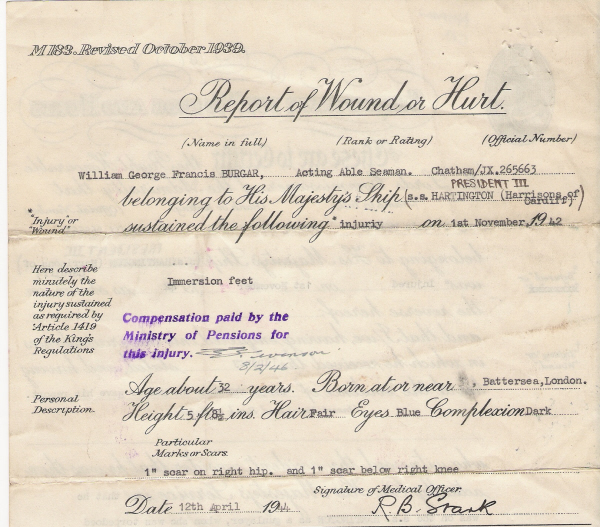 M 183. Revised October 1939.
Report of Wound or Hurt.
(Name in full) (Rank or Rating) (Official Number)
William George Francis BURGAR, Acting Able Seaman. Chatham/JX.265663
PRESIDENT III
belonging to His Majesty's Ship (s.s. HARTINGTON (Harrisons of Cardiff)
"Injury" or "Wound" sustained the following * injuriy on 1st November, 1942
Here describe
minutely the
nature of the
injury sustained
as required by
Article 1419
of the King's
Regulations
Immersion feet
Compensation paid by the
Ministry of Pensions for
this injury.
3/2/46
Personal
Description.
Age about 32 years. Born at or near Battersea, London.
Height 5 ft 8½ ins. Hair Fair Eyes Blue Complexion Dark
Particular
Marks or Scars.
1" scar on right hip. and 1" scar below right knee
Signature of Medical Officer.
Date 12th April 1944 R.B. Stark